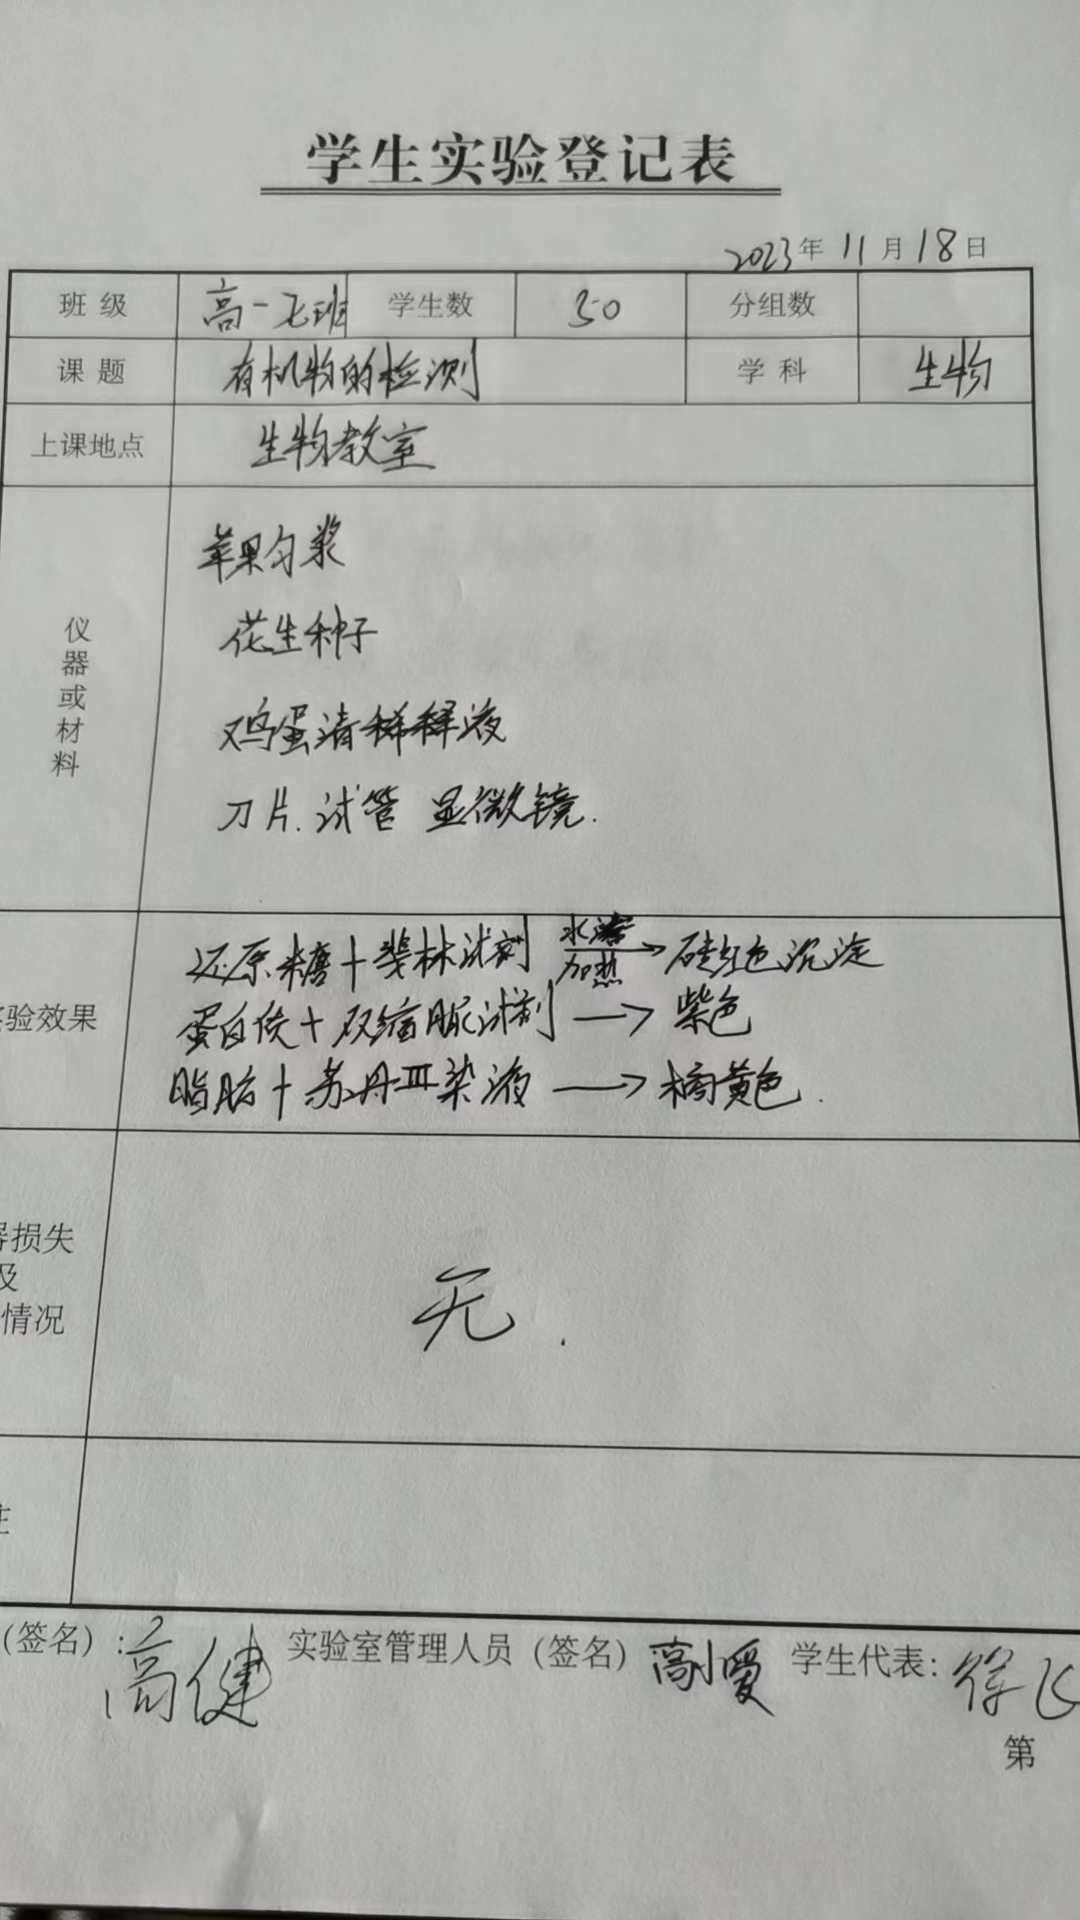 学生实验登记表
2023年 11月18日
班 级 高一七班 学生数 50 分组数
课 题 有机物的检测 学 科 生物
上课地点 生物教室
仪器或材料
苹果匀浆
花生种子
鸡蛋清稀释液
刀片.试管 显微镜.
验效果
还原糖+斐林试剂 水浴加热→砖红色沉淀
蛋白质+双缩脲试剂→紫色
脂肪+苏丹III染液→橘黄色.
损失
及
情况
无.
(签名):高健 实验室管理人员(签名) 高小爱 学生代表:徐飞
第